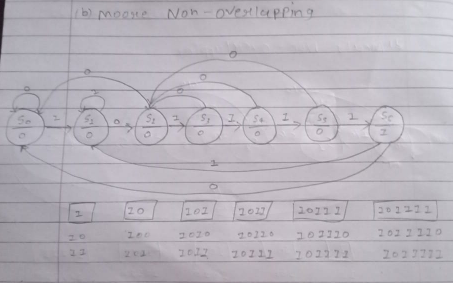 (b) Moore Non-overlapping
0 0 0 0 0
S0 1 S1 0 S2 1 S3 1 S4 1 S5 1 S6
0 0 0 0 0 0 1
1
0
1 10 101 1011 10111 101111
10 100 1010 10110 101110 1011110
11 101 1011 10111 101111 1011111